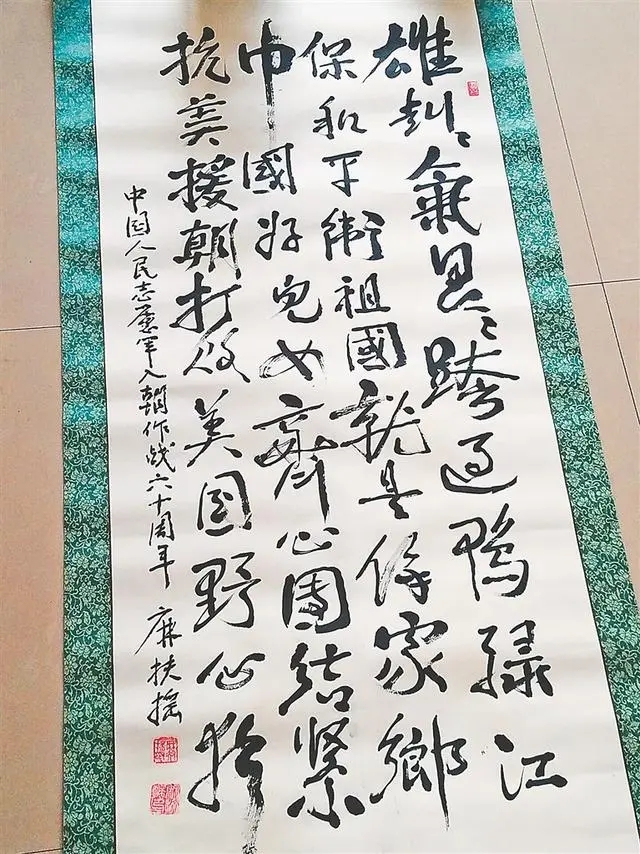 雄赳赳氣昂昂跨过鸭綠江
保和平衛祖國就是保家鄉
中國好兒女齊心團結緊
抗美援朝打敗美国野心狼
中国人民志愿军入朝作战六十周年 麻扶摇